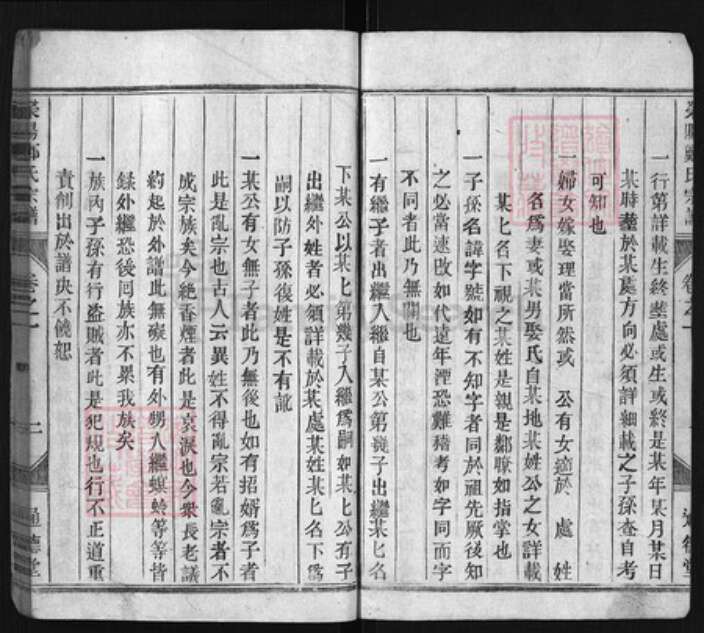 一行第詳載生終塟處或生或終是某年某月某日
某時塟於某處方向必須詳細載之子孫查自考
可知也
一婦女嫁娶理當所然或 公有女適於 處 姓
名爲妻或某男娶氏自某地某姓公之女詳載
某匕名下視之某姓是親是鄰瞭如指掌也
一子孫名諱字號如有不知字者同於祖先厥後知
之必當速改如代遠年湮恐難稽考如字同而字
不同者此乃無關也
一有繼子者出繼入繼自某公第幾子出繼某匕名
下某公以某匕第幾子入繼爲嗣如某匕公有子
出繼外姓者必須詳載於某處某姓某匕名下爲
嗣以防子孫復姓是不有訛
一某公有女無子者此乃無後也如有招婿爲子者
此是亂宗也古人云異姓不得亂宗若亂宗者不
成宗族矣今絶香煙者此是哀淚也今衆長老議
約起於外譜此無礙也有外甥人繼螟蛉等等皆
錄外繼恐後同族亦不累我族矣
一族內子孫有行盜賊者此是犯規也行不正道重
責削出於譜決不饒恕
滎陽鄭氏宗譜
卷之一
二
通德堂